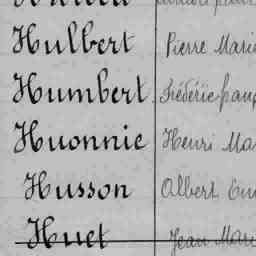 Hulbert Pierre Marie
Humbert Frédéric
Huonnic Henri
Husson Albert
Huet Jean